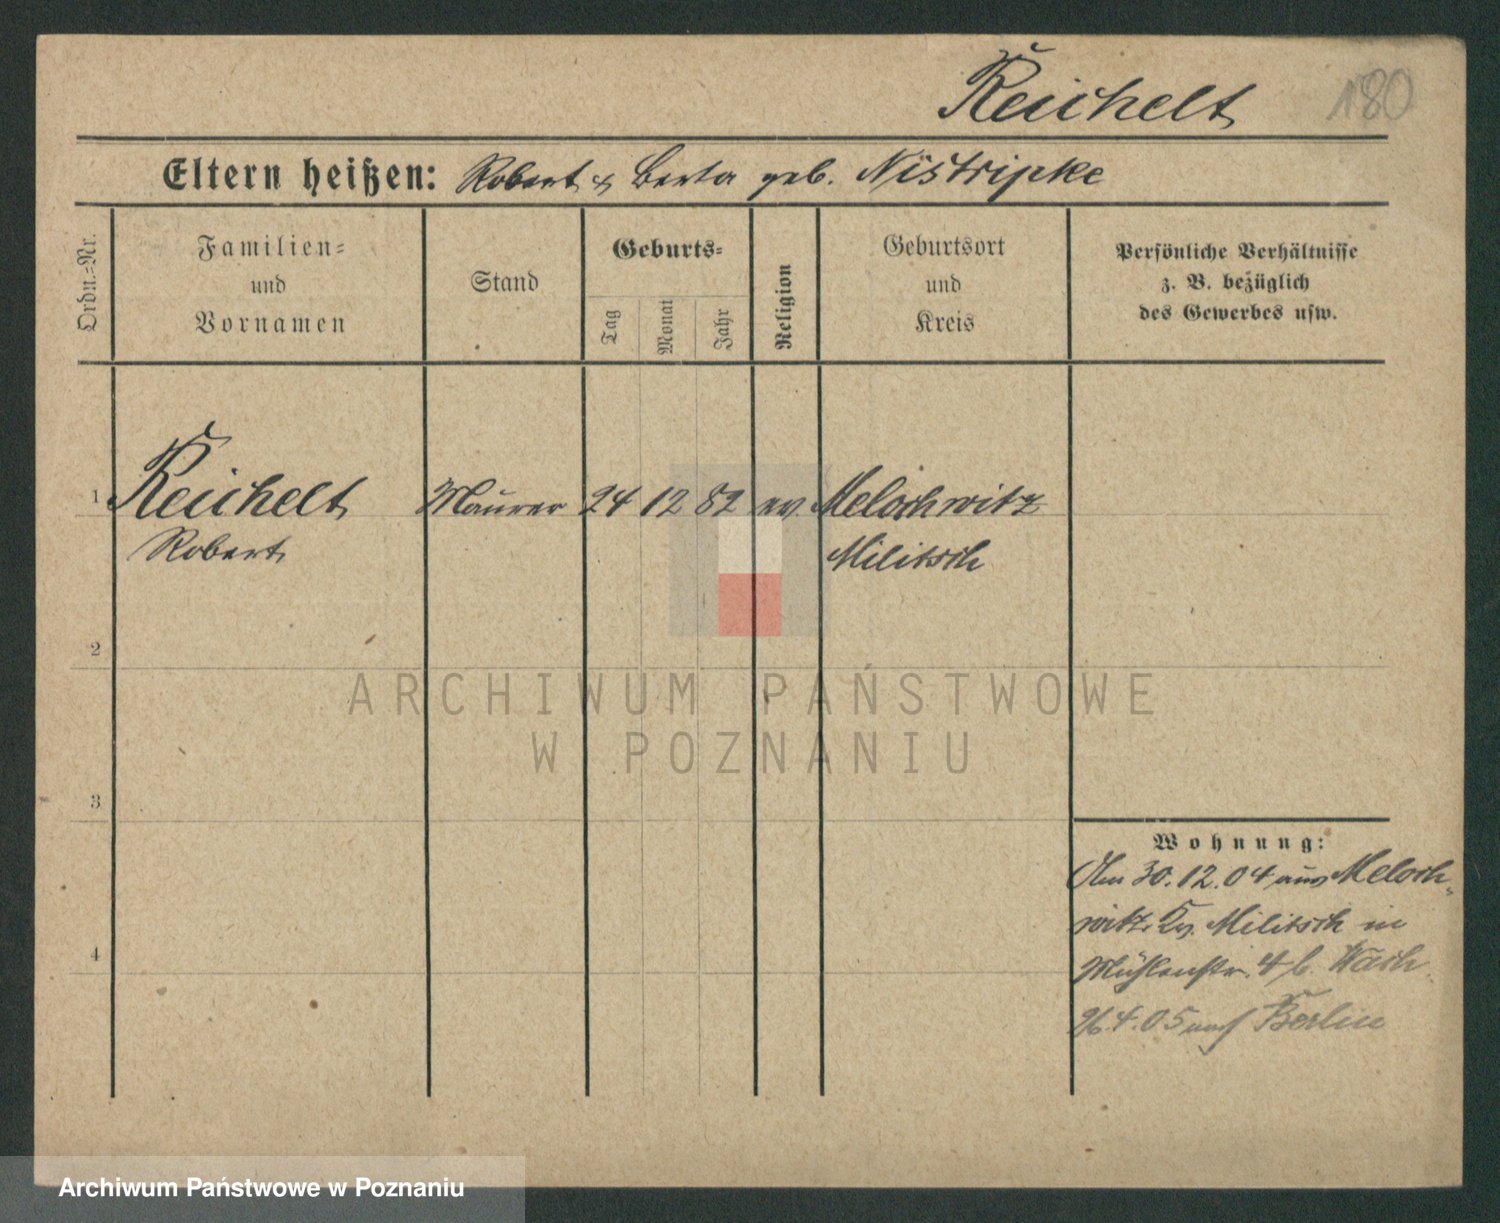 Reichelt 180
Eltern heißen: Robert & Berta geb. Nistripke
Ordn.=Nr.
Familien=
und
Vornamen
Stand
Geburts=
Tag
Monat
Jahr
Religion
Geburtsort
und
Kreis
Persönliche Verhältnisse
z. B. bezüglich
des Gewerbes usw.
1 Reichelt Maurer 24 12 82 ev. Melochwitz
Robert Militsch
2
ARCHIWUM PAŃSTWOWE
W POZNANIU
3
Wohnung:
Am 30.12.04 aus Meloch-
witz Kr. Militsch in
4
Mühlenstr. 4 b.
26.4.05 nach Berlin
Archiwum Państwowe w Poznaniu